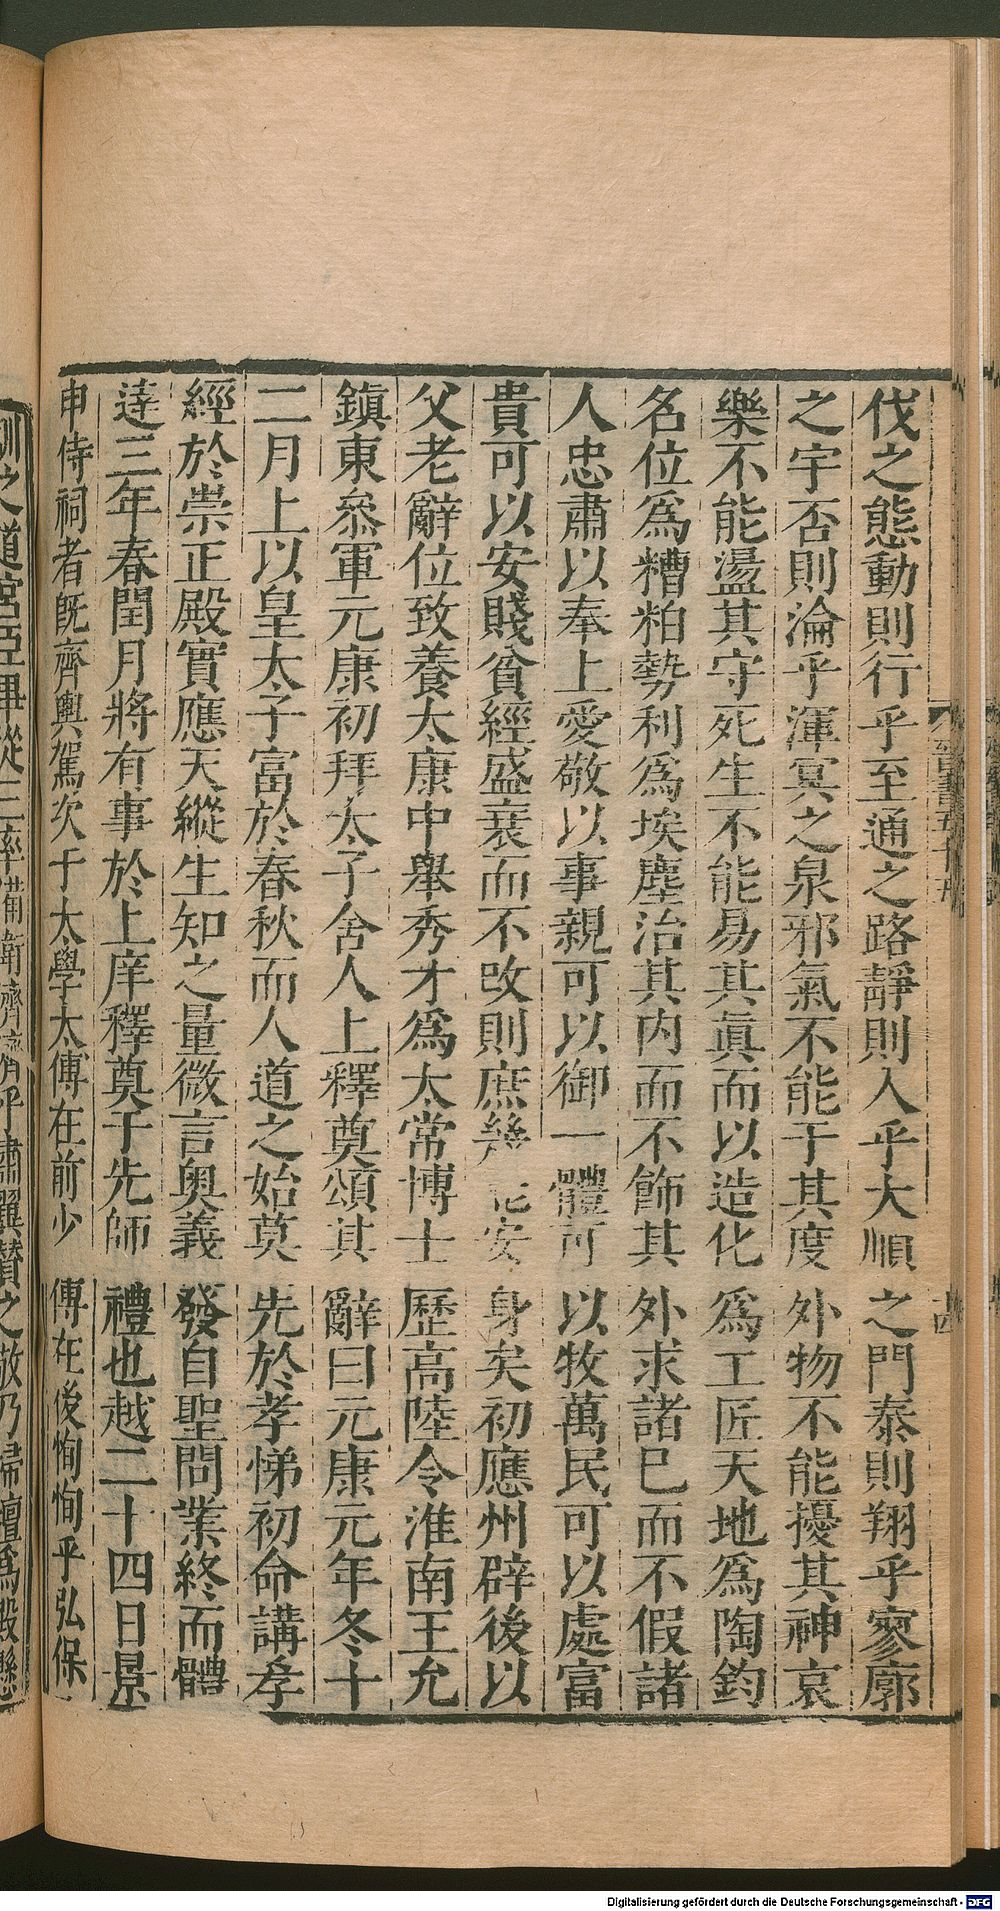 伐之態動則行乎至通之路靜則入乎大順之門泰則翔乎寥廓
之宇否則淪乎渾冥之泉邪氣不能干其度外物不能擾其神哀
樂不能盪其守死生不能易其眞而以造化爲工匠天地爲陶鈞
名位爲糟粕勢利爲埃塵治其内而不飾其外求諸己而不假諸
人忠肅以奉上愛敬以事親可以御一體可以牧萬民可以處富
貴可以安賤貧經盛衰而不改則庶幾 安身矣初應州辟後以
父老辭位致養太康中舉秀才爲太常博士歷高陸令淮南王允
鎮東叅軍元康初拜太子舍人上釋奠頌其辭曰元康元年冬十
二月上以皇太子富於春秋而人道之始莫先於孝悌初命講孝
經於崇正殿實應天縱生知之量微言奥義發自聖問業終而體
達三年春閏月將有事於上庠釋奠于先師禮也越二十四日景
申侍祠者旣齊輿駕次于太學太傅在前少傅在後恂恂乎弘保
訓之道宮臣畢從三率備衛濟濟乎肅翼贊之敬乃埽壇爲殿懸
晉書五十五
十四
Digitalisierung gefördert durch die Deutsche Forschungsgemeinschaft - DFG